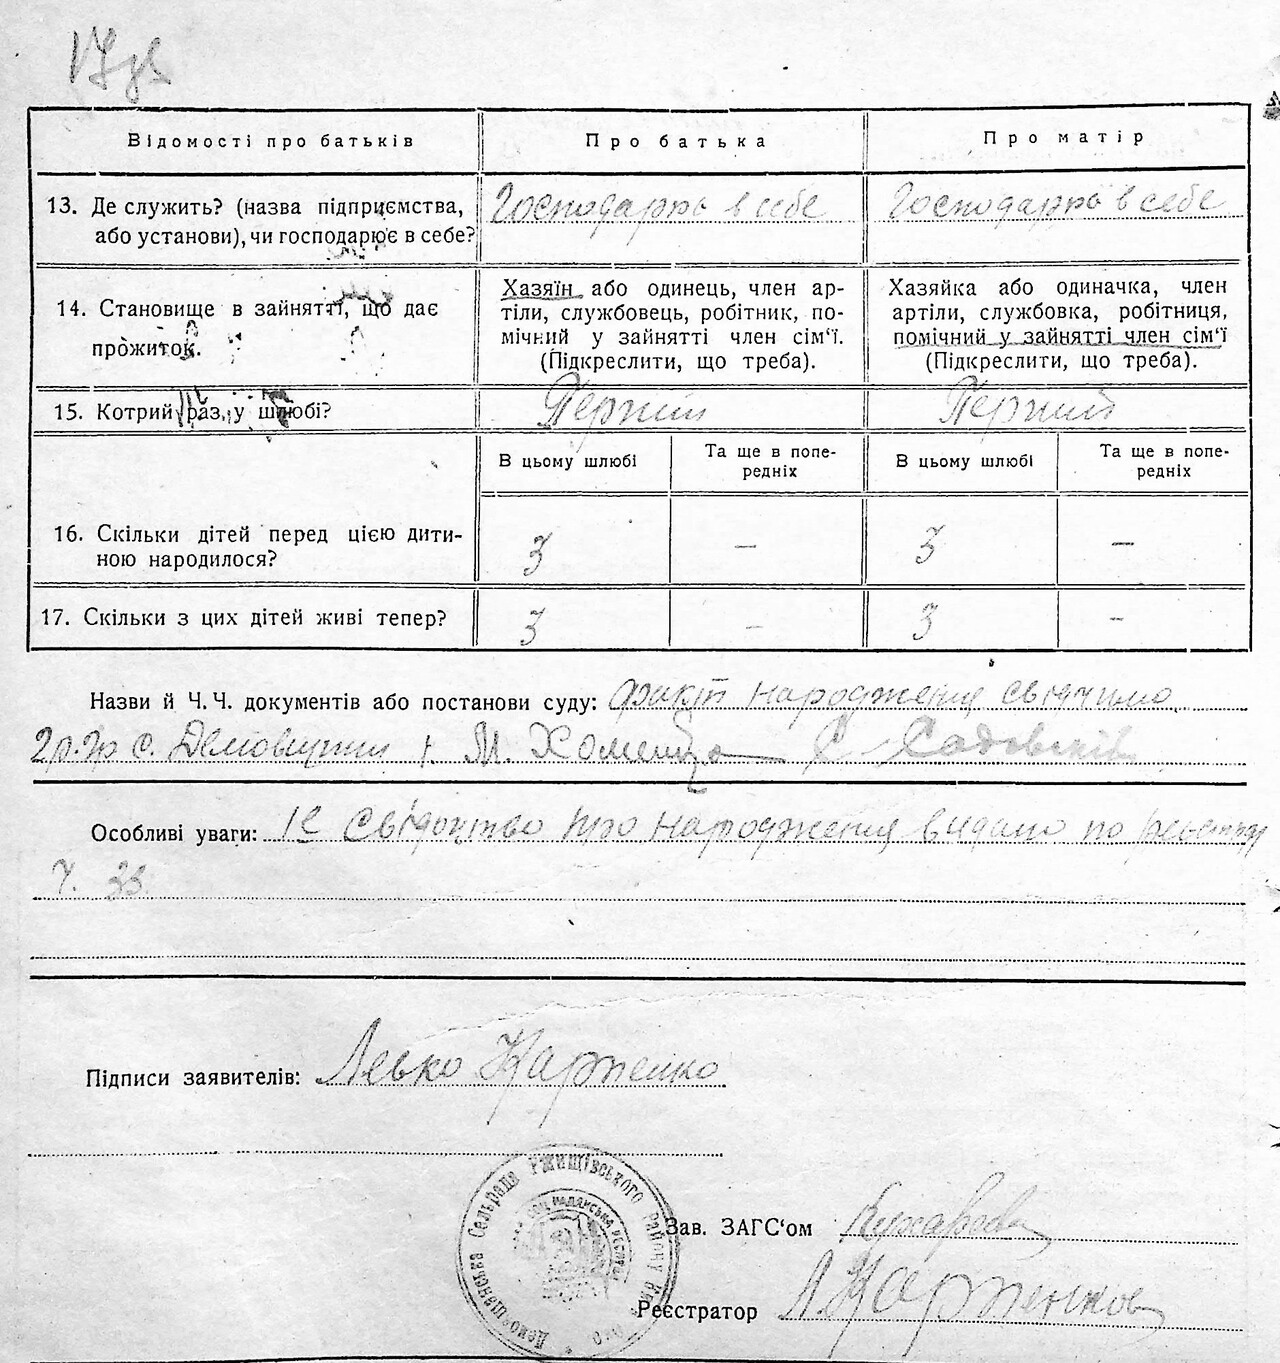 Відомості про батьків
Про батька
Про матір
13. Де служить? (назва підприємства,
або установи), чи господарює в себе?
Господарює в себе
Господарює в себе
14. Становище в зайнятті, що дає
прожиток.
Хазяїн або одинець, член ар-
тіли, службовець, робітник, по-
мічний у зайнятті член сім‘ї.
(Підкреслити, що треба).
Хазяйка або одиначка, член
артіли, службовка, робітниця,
помічний у зайнятті член сім‘ї
(Підкреслити, що треба).
15. Котрий раз у шлюбі?
Перший
Перший
В цьому шлюбі
Та ще в попе-
редніх
В цьому шлюбі
Та ще в попе-
редніх
16. Скільки дітей перед цією дити-
ною народилося?
3
—
3
—
17. Скільки з цих дітей живі тепер?
3
—
3
—
Назви й Ч. Ч. документів або постанови суду: факт народження свідчимо
2 гр. гр с. М. Хоменко С. Садовський
Особливі уваги: Свідоцтво про народження видано по реєстру
Ч. 33
Підписи заявителів: Левко Карпенко
Сельрада Ржищівського Району
Зав. ЗАГС‘ом
Реєстратор Карпенкова